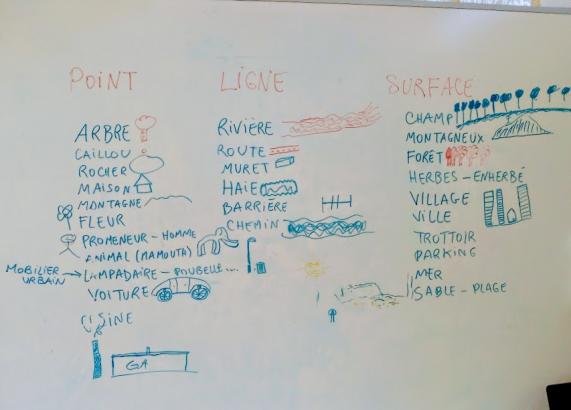 POINT
ARBRE
CAILLOU
ROCHER
MAISON
MONTAGNE
FLEUR
PROMENEUR - HOMME
ANIMAL (MAMOUTH)
MOBILIER URBAIN → LAMPADAIRE - POUBELLE ...
VOITURE
USINE
GA
LIGNE
RIVIÈRE
ROUTE
MURET
HAIE
BARRIÈRE
CHEMIN
SURFACE
CHAMP
MONTAGNEUX
FORÊT
HERBES - ENHERBÉ
VILLAGE
VILLE
TROTTOIR
PARKING
MER
SABLE - PLAGE